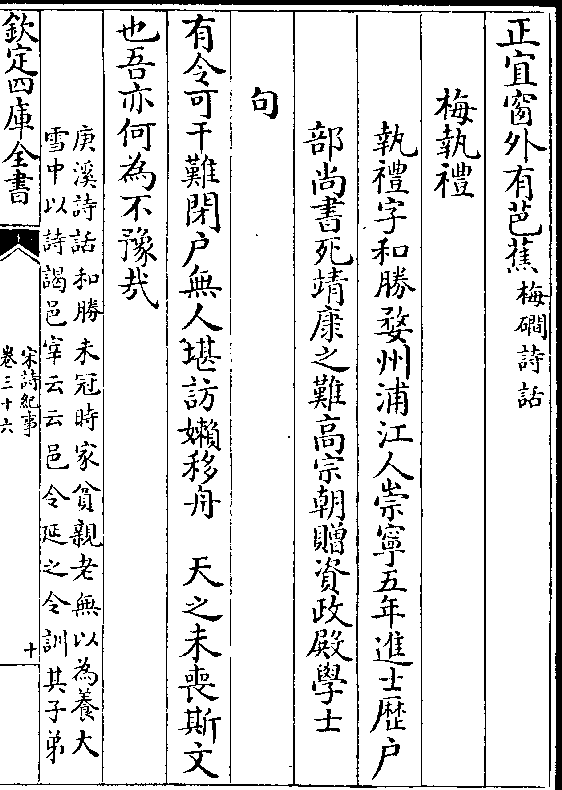 正宜窗外有芭蕉梅磵詩話
梅執禮
執禮字和勝婺州浦江人崇寧五年進士歴户
部尚書死靖康之難高宗朝贈資政殿學士
句
有令可干難閉户無人堪訪嬾移舟　天之未喪斯文
也吾亦何為不豫哉
庚溪詩話和勝未冠時家貧親老無以為養大
雪中以詩謁邑宰云云邑令延之令訓其子弟
欽定四庫全書
宋詩紀事
卷三十六
十